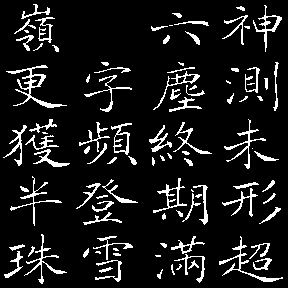 神測未形超
六塵終期滿
字頻登雪
嶺更獲半珠